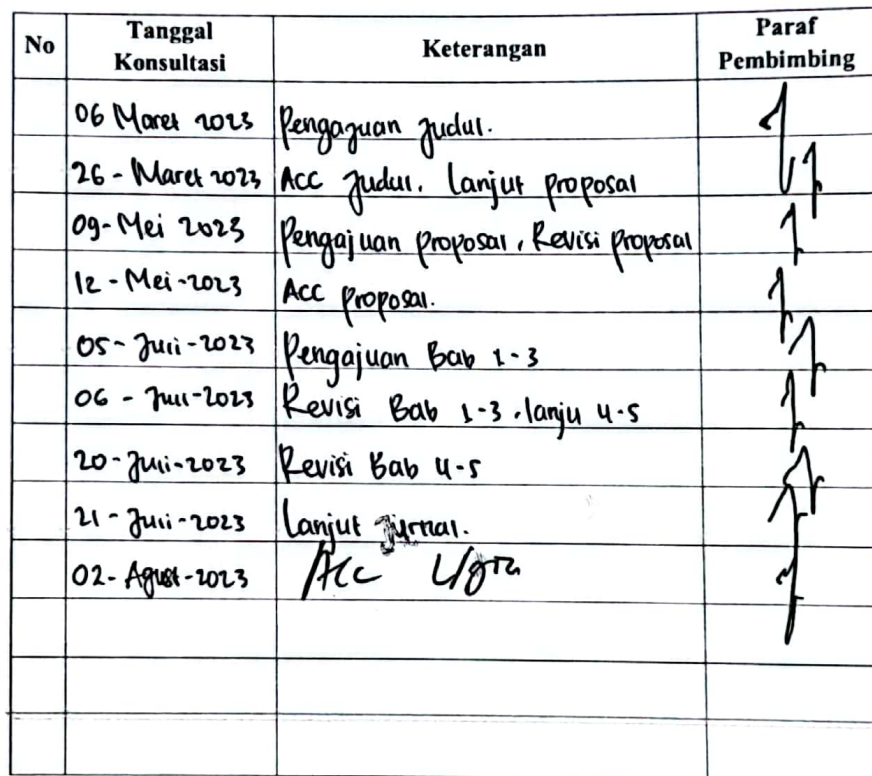 No Tanggal Konsultasi Keterangan Paraf Pembimbing
06 Maret 2023 Pengajuan Judul.
26 - Maret 2023 Acc Judul. Lanjut proposal
09 - Mei 2023 Pengajuan proposal, Revisi proposal
12 - Mei - 2023 Acc proposal.
05 - Juli - 2023 Pengajuan Bab 1-3
06 - Juli - 2023 Revisi Bab 1-3, lanju 4-5
20 - Juli - 2023 Revisi Bab 4-5
21 - Juli - 2023 Lanjut Jurnal.
02 - Agust - 2023 Acc